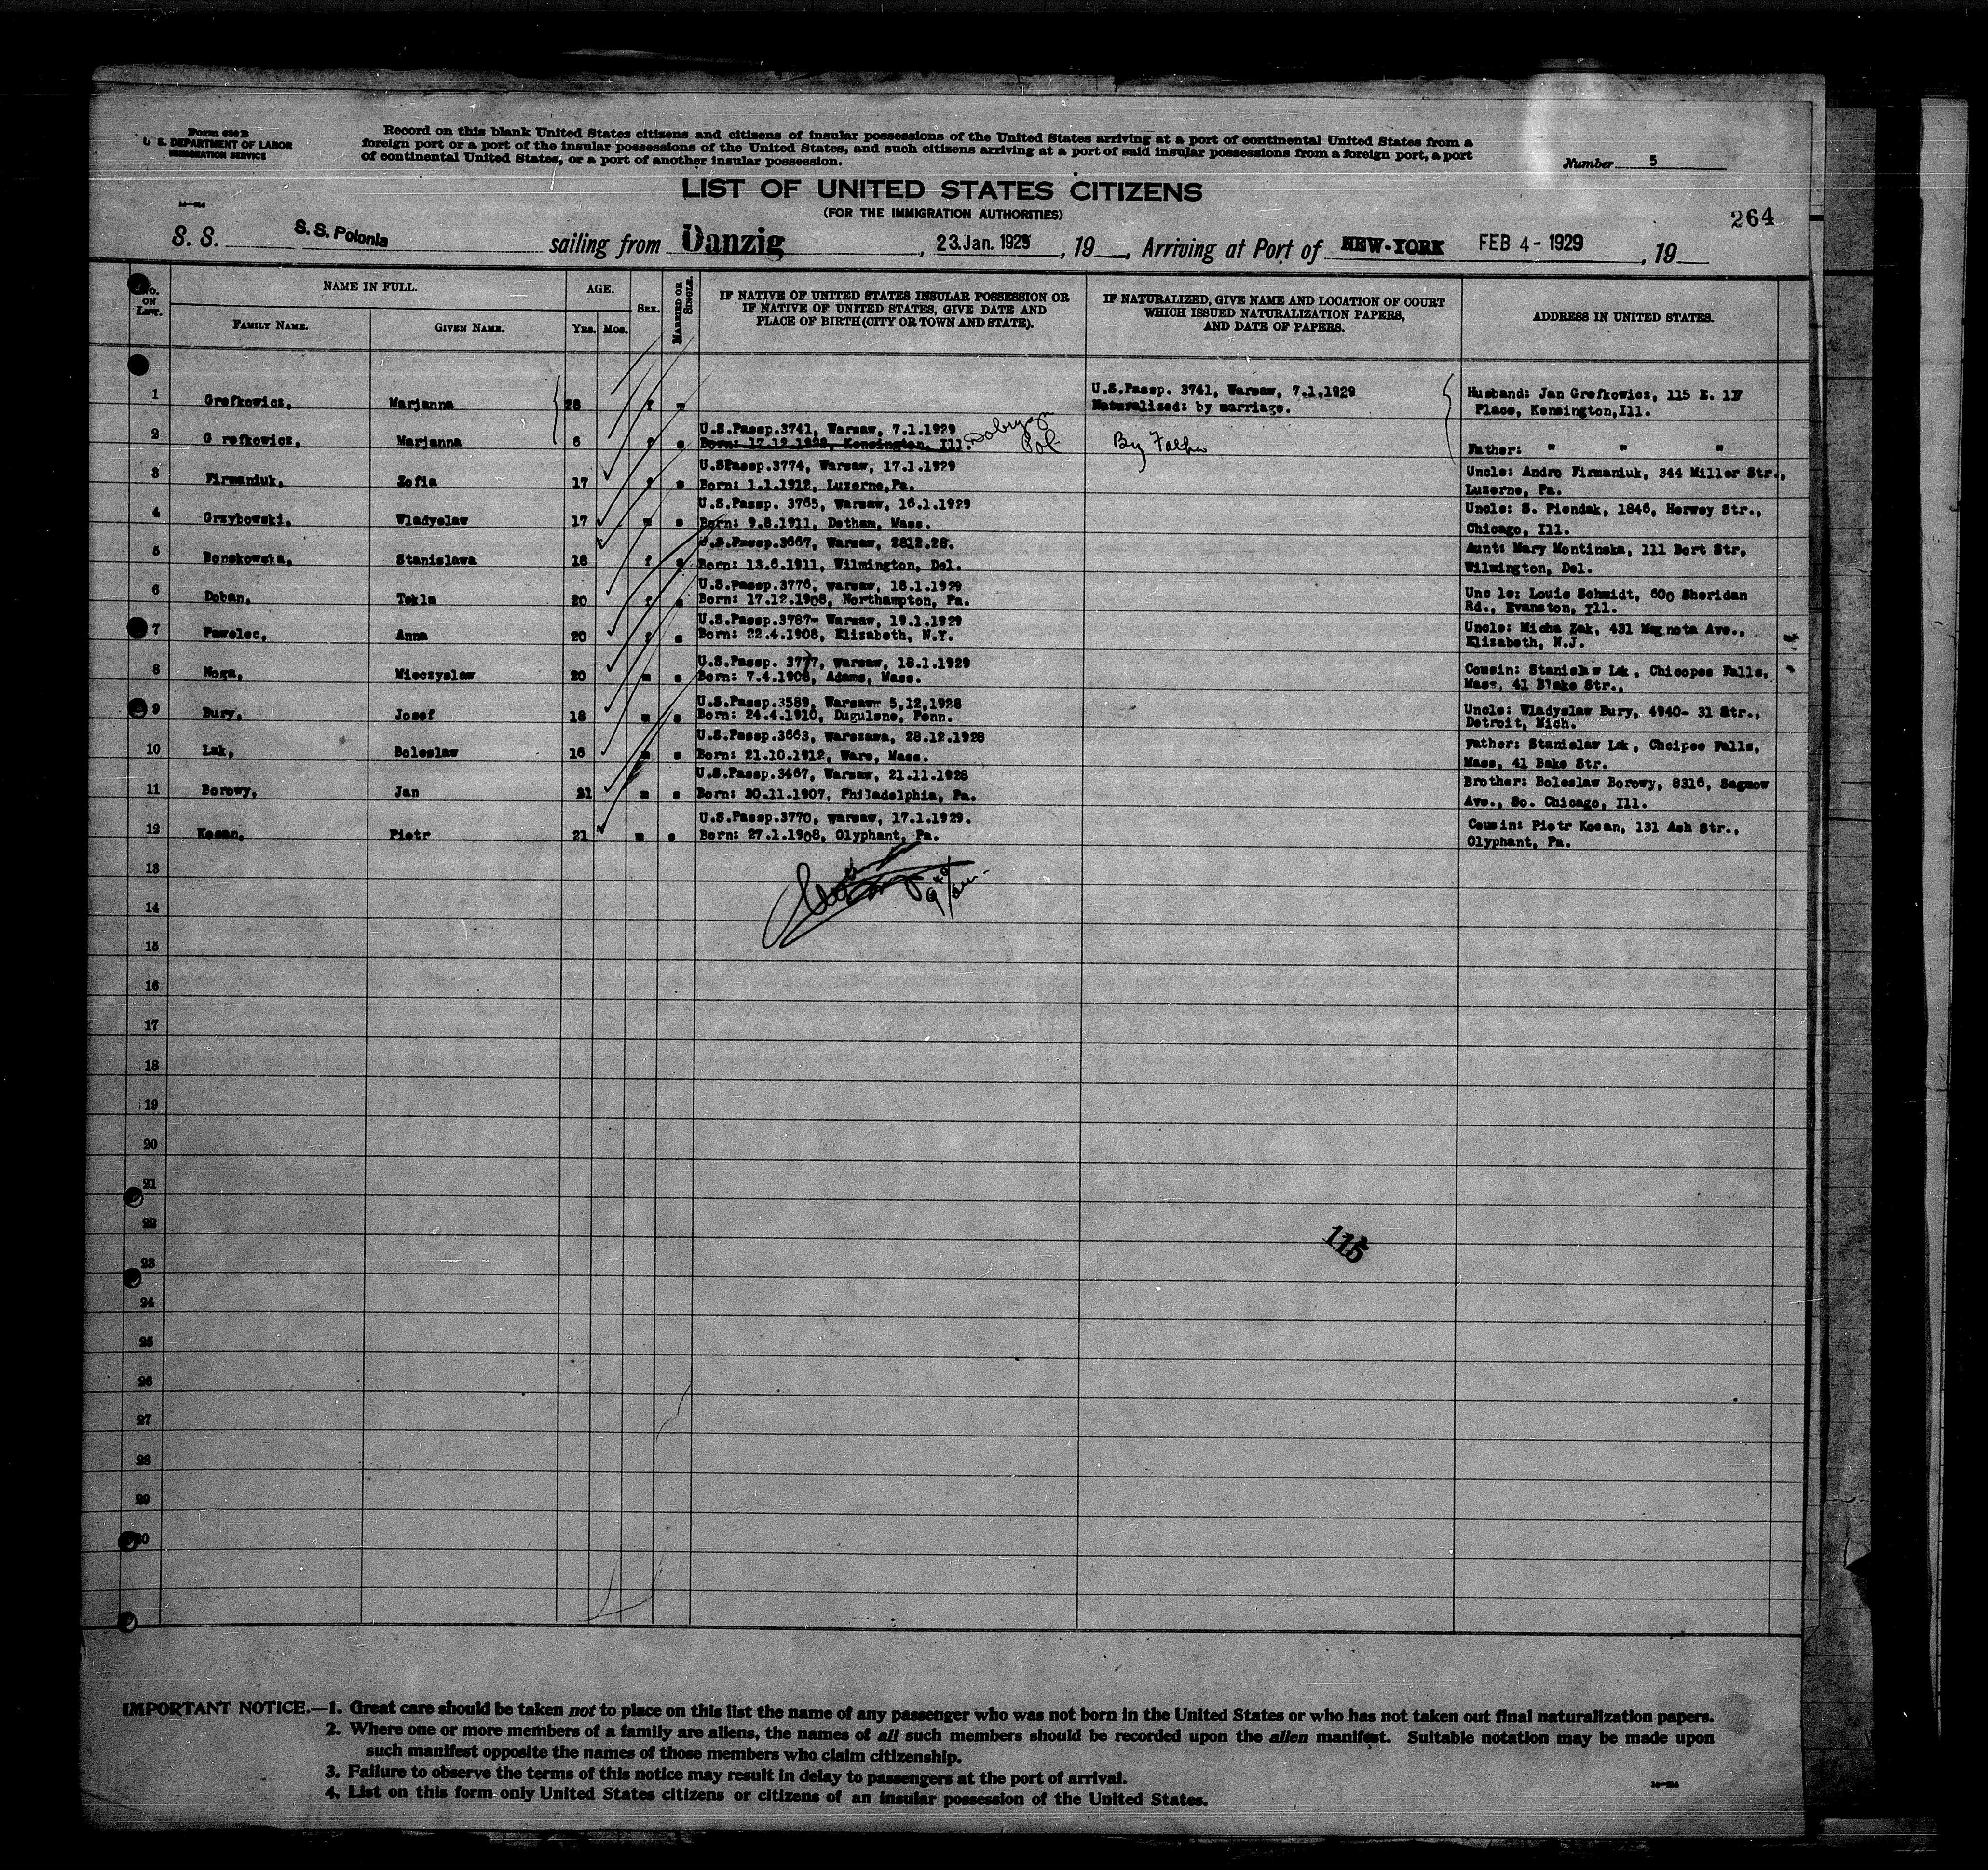 Form 630 B
U. S. DEPARTMENT OF LABOR
IMMIGRATION SERVICE
Record on this blank United States citizens and citizens of insular possessions of the United States arriving at a port of continental United States from a
foreign port or a port of the insular possessions of the United States, and such citizens arriving at a port of said insular possessions from a foreign port, a port
of continental United States, or a port of another insular possession.
Number 5
LIST OF UNITED STATES CITIZENS
(FOR THE IMMIGRATION AUTHORITIES)
264
S. S. S. S. Polonia sailing from Danzig, 23.Jan. 1929, 19, Arriving at Port of NEW-YORK FEB 4 - 1929, 19
No. ON LIST.
NAME IN FULL.
FAMILY NAME.
GIVEN NAME.
AGE.
YRS. MOS.
SEX.
MARRIED OR SINGLE.
IF NATIVE OF UNITED STATES INSULAR POSSESSION OR
IF NATIVE OF UNITED STATES, GIVE DATE AND
PLACE OF BIRTH (CITY OR TOWN AND STATE).
IF NATURALIZED, GIVE NAME AND LOCATION OF COURT
WHICH ISSUED NATURALIZATION PAPERS,
AND DATE OF PAPERS.
ADDRESS IN UNITED STATES.
1 Grefkowicz, Marjanna 28 f m
U.S.Passp. 3741, Warsaw, 7.1.1929
Naturalized: by marriage.
Husband: Jan Grefkowicz, 115 E. 117
Place, Kensington,Ill.
2 G refkowicz, Marjanna 6 f s
U.S.Passp.3741, Warsaw, 7.1.1929
Born: 17.12.1922, Kensington, Ill.
Pol
By Father
Father: " " "
3 Firmaniuk, Zofia 17 f s
U.SPassp.3774, Warsaw, 17.1.1929
Born: 1.1.1912, Luzerne,Pa.
Uncle: Andro Firmaniuk, 344 Miller Str.,
Luzerne, Pa.
4 Grzybowski, Wladyslaw 17 m s
U.S.Passp. 3765, Warsaw, 16.1.1929
Born: 9.8.1911, Detham, Mass.
Uncle: S. Piendak, 1846, Herwey Str.,
Chicago, Ill.
5 Bonskowska, Stanislawa 18 f s
U.S.Passp.3667, Warsaw, 2812.28.
Born: 13.6.1911, Wilmington, Del.
Aunt: Mary Montinska, 111 Bort Str,
Wilmington, Del.
6 Doban, Tekla 20 f s
U.S.Passp.3776, warsaw, 18.1.1929
Born: 17.12.1908, Northampton, Pa.
Unc le: Louis Schmidt, 600 Sheridan
Rd., Evanston, Ill.
7 Pawelec, Anna 20 f s
U.S.Passp.3787- Warsaw, 19.1.1929
Born: 22.4.1908, Elizabeth, N.Y.
Uncle: Micha Zak, 431 Magnota Ave.,
Elizabeth, N.J.
8 Noga, Mieczyslaw 20 m s
U.S.Passp. 3777, warsaw, 18.1.1929
Born: 7.4.1908, Adams, Mass.
Cousin: Stanislaw Lak, Chicopee Falls,
Mass, 41 Blake Str.,
9 Bury, Josef 18 m s
U.S.Passp.3589, Warsaw- 5,12,1928
Born: 24.4.1910, Dugulsne, Penn.
Uncle: Wladyslaw Bury, 4940- 31 Str.,
Detroit, Mich.
10 Lak, Boleslaw 16 m s
U.S.Passp.3663, Warszawa, 28.12.1928
Born: 21.10.1912, Ware, Mass.
Father: Stanislaw Lak, Choipee Falls,
Mass, 41 Bake Str.
11 Borowy, Jan 21 m s
U.S.Passp.3467, Warsaw, 21.11.1928
Born: 30.11.1907, Philadelphia, Pa.
Brother: Boleslaw Borowy, 8316, Sagmow
Ave., So. Chicago, Ill.
12 Kosan, Piotr 21 m s
U.S.Passp.3770, warsaw, 17.1.1929.
Born: 27.1.1908, Olyphant, Pa.
Cousin: Piotr Kosan, 131 Ash Str.,
Olyphant, Pa.
13
14
15
16
17
18
19
20
21
22
115
23
24
25
26
27
28
29
30
IMPORTANT NOTICE.—1. Great care should be taken not to place on this list the name of any passenger who was not born in the United States or who has not taken out final naturalization papers.
2. Where one or more members of a family are aliens, the names of all such members should be recorded upon the alien manifest. Suitable notation may be made upon
such manifest opposite the names of those members who claim citizenship.
3. Failure to observe the terms of this notice may result in delay to passengers at the port of arrival.
4. List on this form only United States citizens or citizens of an insular possession of the United States.